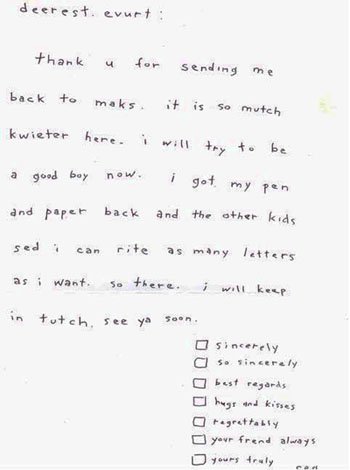 deerest. evurt:
thank u for sending me
back to maks. it is so mutch
kwieter here. i will try to be
a good boy now. i got my pen
and paper back and the other kids
sed i can rite as many letters
as i want. so there. i will keep
in tutch. see ya soon.
□ sincerely
□ so sincerely
□ best regards
□ hugs and kisses
□ regrettably
□ your frend always
□ yours truly